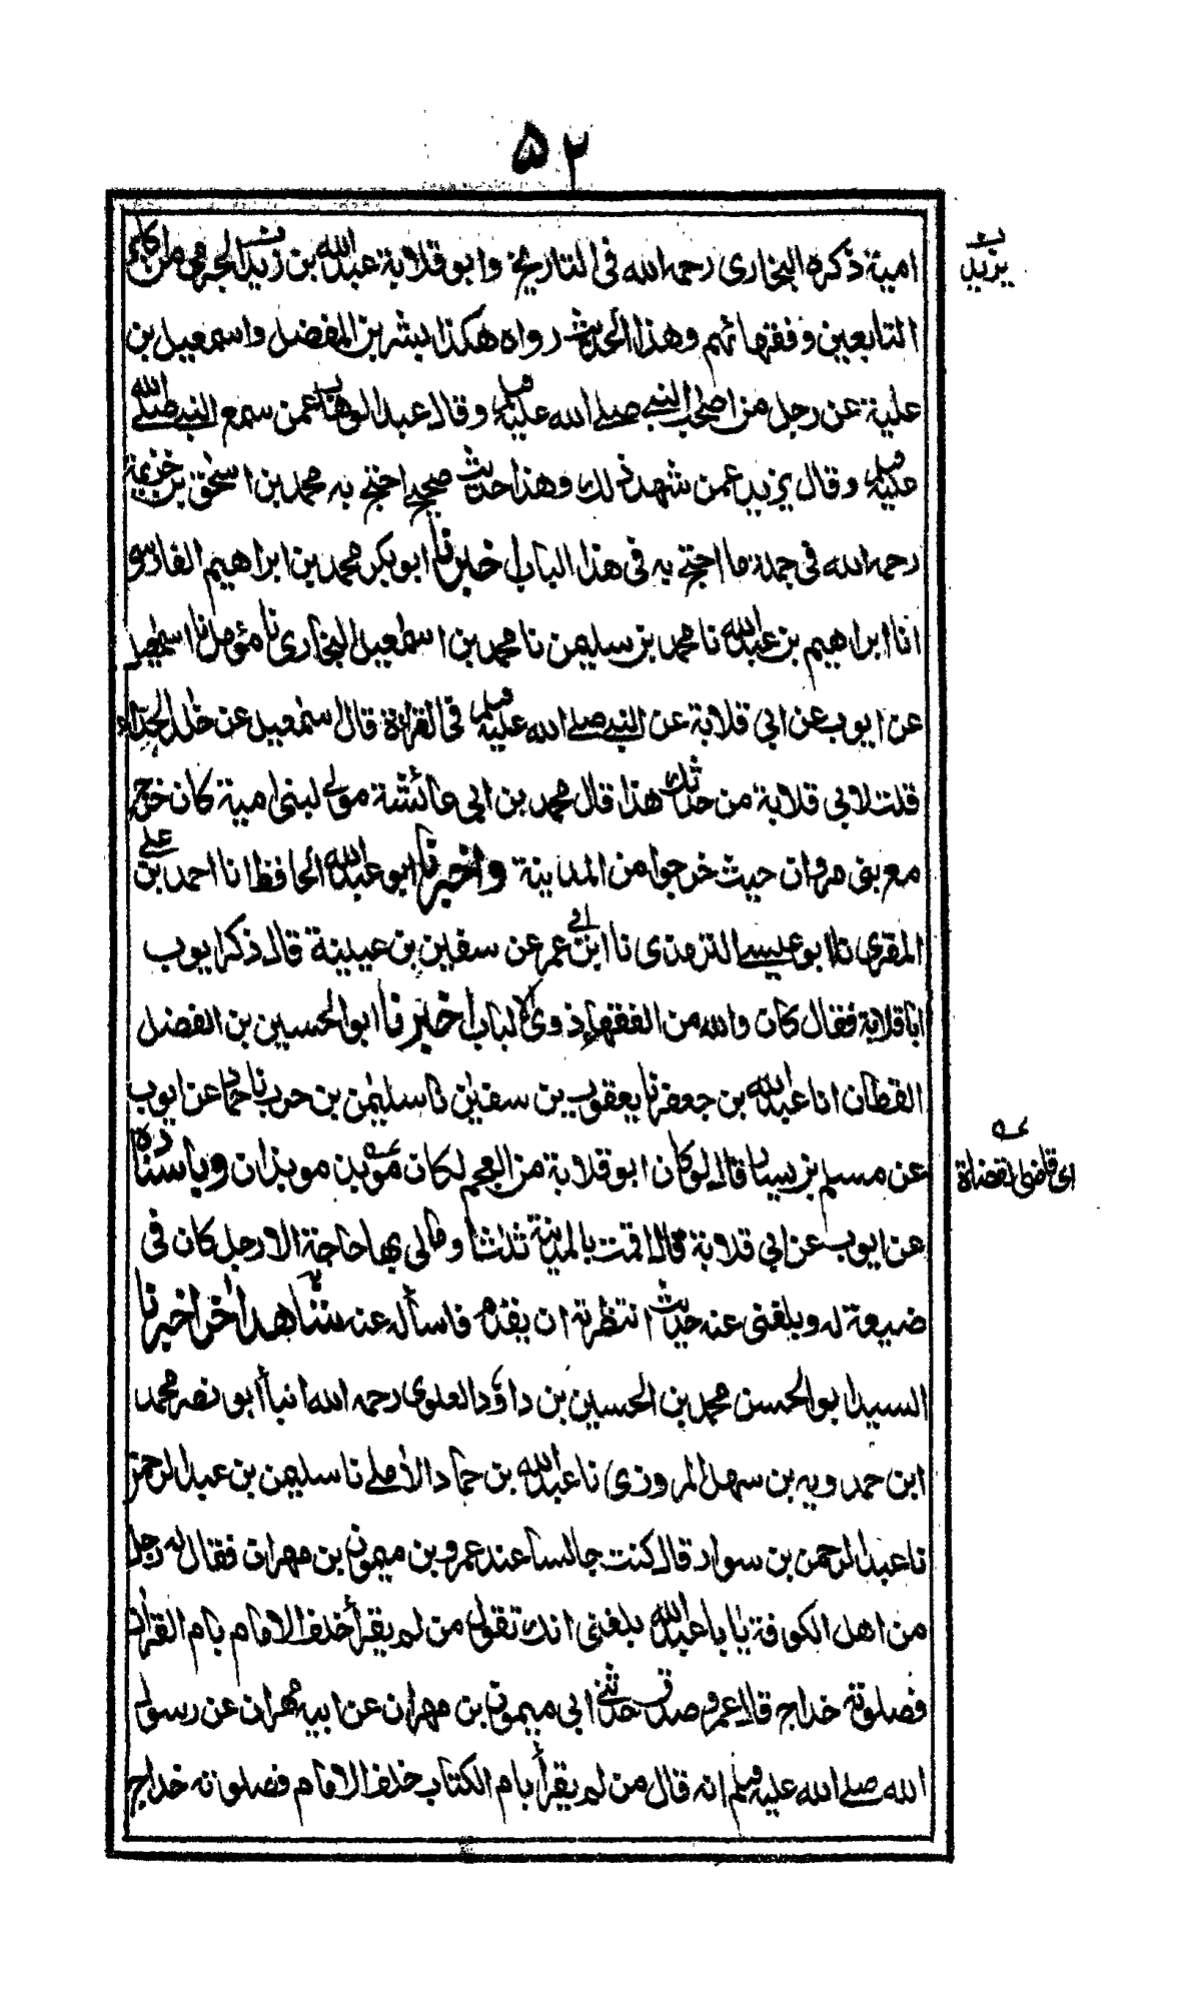 ۵۲
امية ذكره البخاري رحمه الله في التاريخ وابو قلابة عبد الله بن زيد الجرمي من اكابر
يزيد
التابعين وفقهائهم وهذا الحديث رواه هكذا بشر بن المفضل واسمعيل بن
علية عن رجل من اصحاب النبي صلى الله عليه وسلم وقال عبد الوهاب عمن سمع النبي صلى الله
عليه وسلم وقال يزيد عمن شهد ذلك وهذا حديث صحيح احتج به محمد بن اسحق بن خزيمة
رحمه الله في جملة ما احتج به في هذا الباب اخبرنا ابو بكر محمد بن ابراهيم الفارسي
انا ابراهيم بن عبد الله نا محمد بن سليمن نا محمد بن اسمعيل البخاري نا مؤمل نا اسمعيل
عن ايوب عن ابي قلابة عن النبي صلى الله عليه وسلم في القراءة قال اسمعيل عن خالد الحذاء
قلت لابي قلابة من حدثك هذا قال محمد بن ابي عائشة مولى لبني امية كان خرج
مع بني مروان حيث خرجوا من المدينة واخبرنا ابو عبد الله الحافظ انا احمد بن علي
المقري نا ابو عيسى الترمذي نا ابن ابي عمر عن سفين بن عيينة قال ذكر ايوب
ابا قلابة فقال كان والله من الفقهاء ذوي الالباب اخبرنا ابو الحسين بن الفضل
القطان انا عبد الله بن جعفر نا يعقوب بن سفين نا سليمن بن حرب نا حماد عن ايوب
عن مسلم بن يسار قال لو كان ابو قلابة من العجم لكان موبذ موبذان وباسناده
اى قاضى القضاة
عن ايوب عن ابي قلابة قال اقمت بالمدينة ثلثا وما لي بها حاجة الا رجل كان في
ضيعة له وبلغني عنه حديث انتظرته ان يقدم فاسأله عنه شاهد اخر اخبرنا
السيد ابو الحسن محمد بن الحسين بن داؤد العلوي رحمه الله انبأ ابو نصر محمد
ابن حمدويه بن سهل المروزي نا عبد الله بن حماد الاملي نا سليمن بن عبد الرحمن
نا عبد الرحمن بن سوار قال كنت جالسا عند عمرو بن ميمون بن مهران فقال له رجل
من اهل الكوفة يا ابا عبد الله بلغني انك تقول من لم يقرأ خلف الامام بام القران
فصلوته خداج قال عمرو صدق حدثني ابي ميمون بن مهران عن ابيه مهران عن رسول
الله صلى الله عليه وسلم انه قال من لم يقرأ بام الكتاب خلف الامام فصلوته خداج